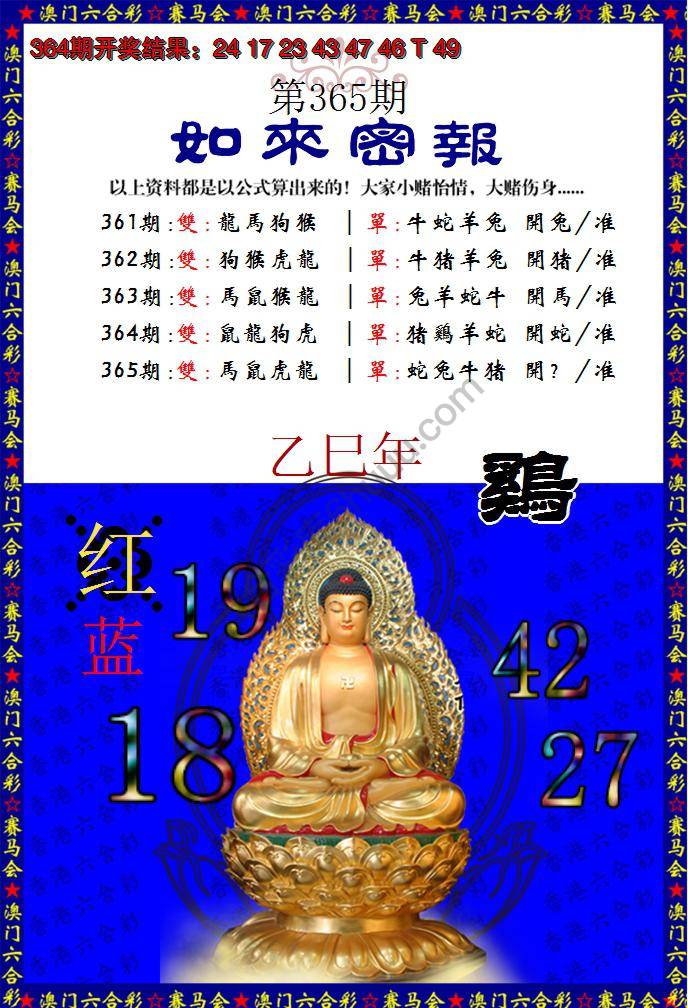 ★澳门六合彩☆赛马会★澳门六合彩☆赛马会★澳门六合彩☆赛马会★
364期开奖结果：24 17 23 43 47 46 T 49
第365期
如來密報
以上资料都是以公式算出来的！大家小赌怡情，大赌伤身......
361期:雙：龍馬狗猴 | 單：牛蛇羊兔 開兔/准
362期:雙：狗猴虎龍 | 單：牛猪羊兔 開猪/准
363期:雙：馬鼠猴龍 | 單：兔羊蛇牛 開馬/准
364期:雙：鼠龍狗虎 | 單：猪鷄羊蛇 開蛇/准
365期:雙：馬鼠虎龍 | 單：蛇兔牛猪 開？/准
乙巳年
鷄
红
蓝
19
42
18
27
香港六合彩
★澳门六合彩☆赛马会★澳门六合彩☆赛马会★澳门六合彩☆赛马会★